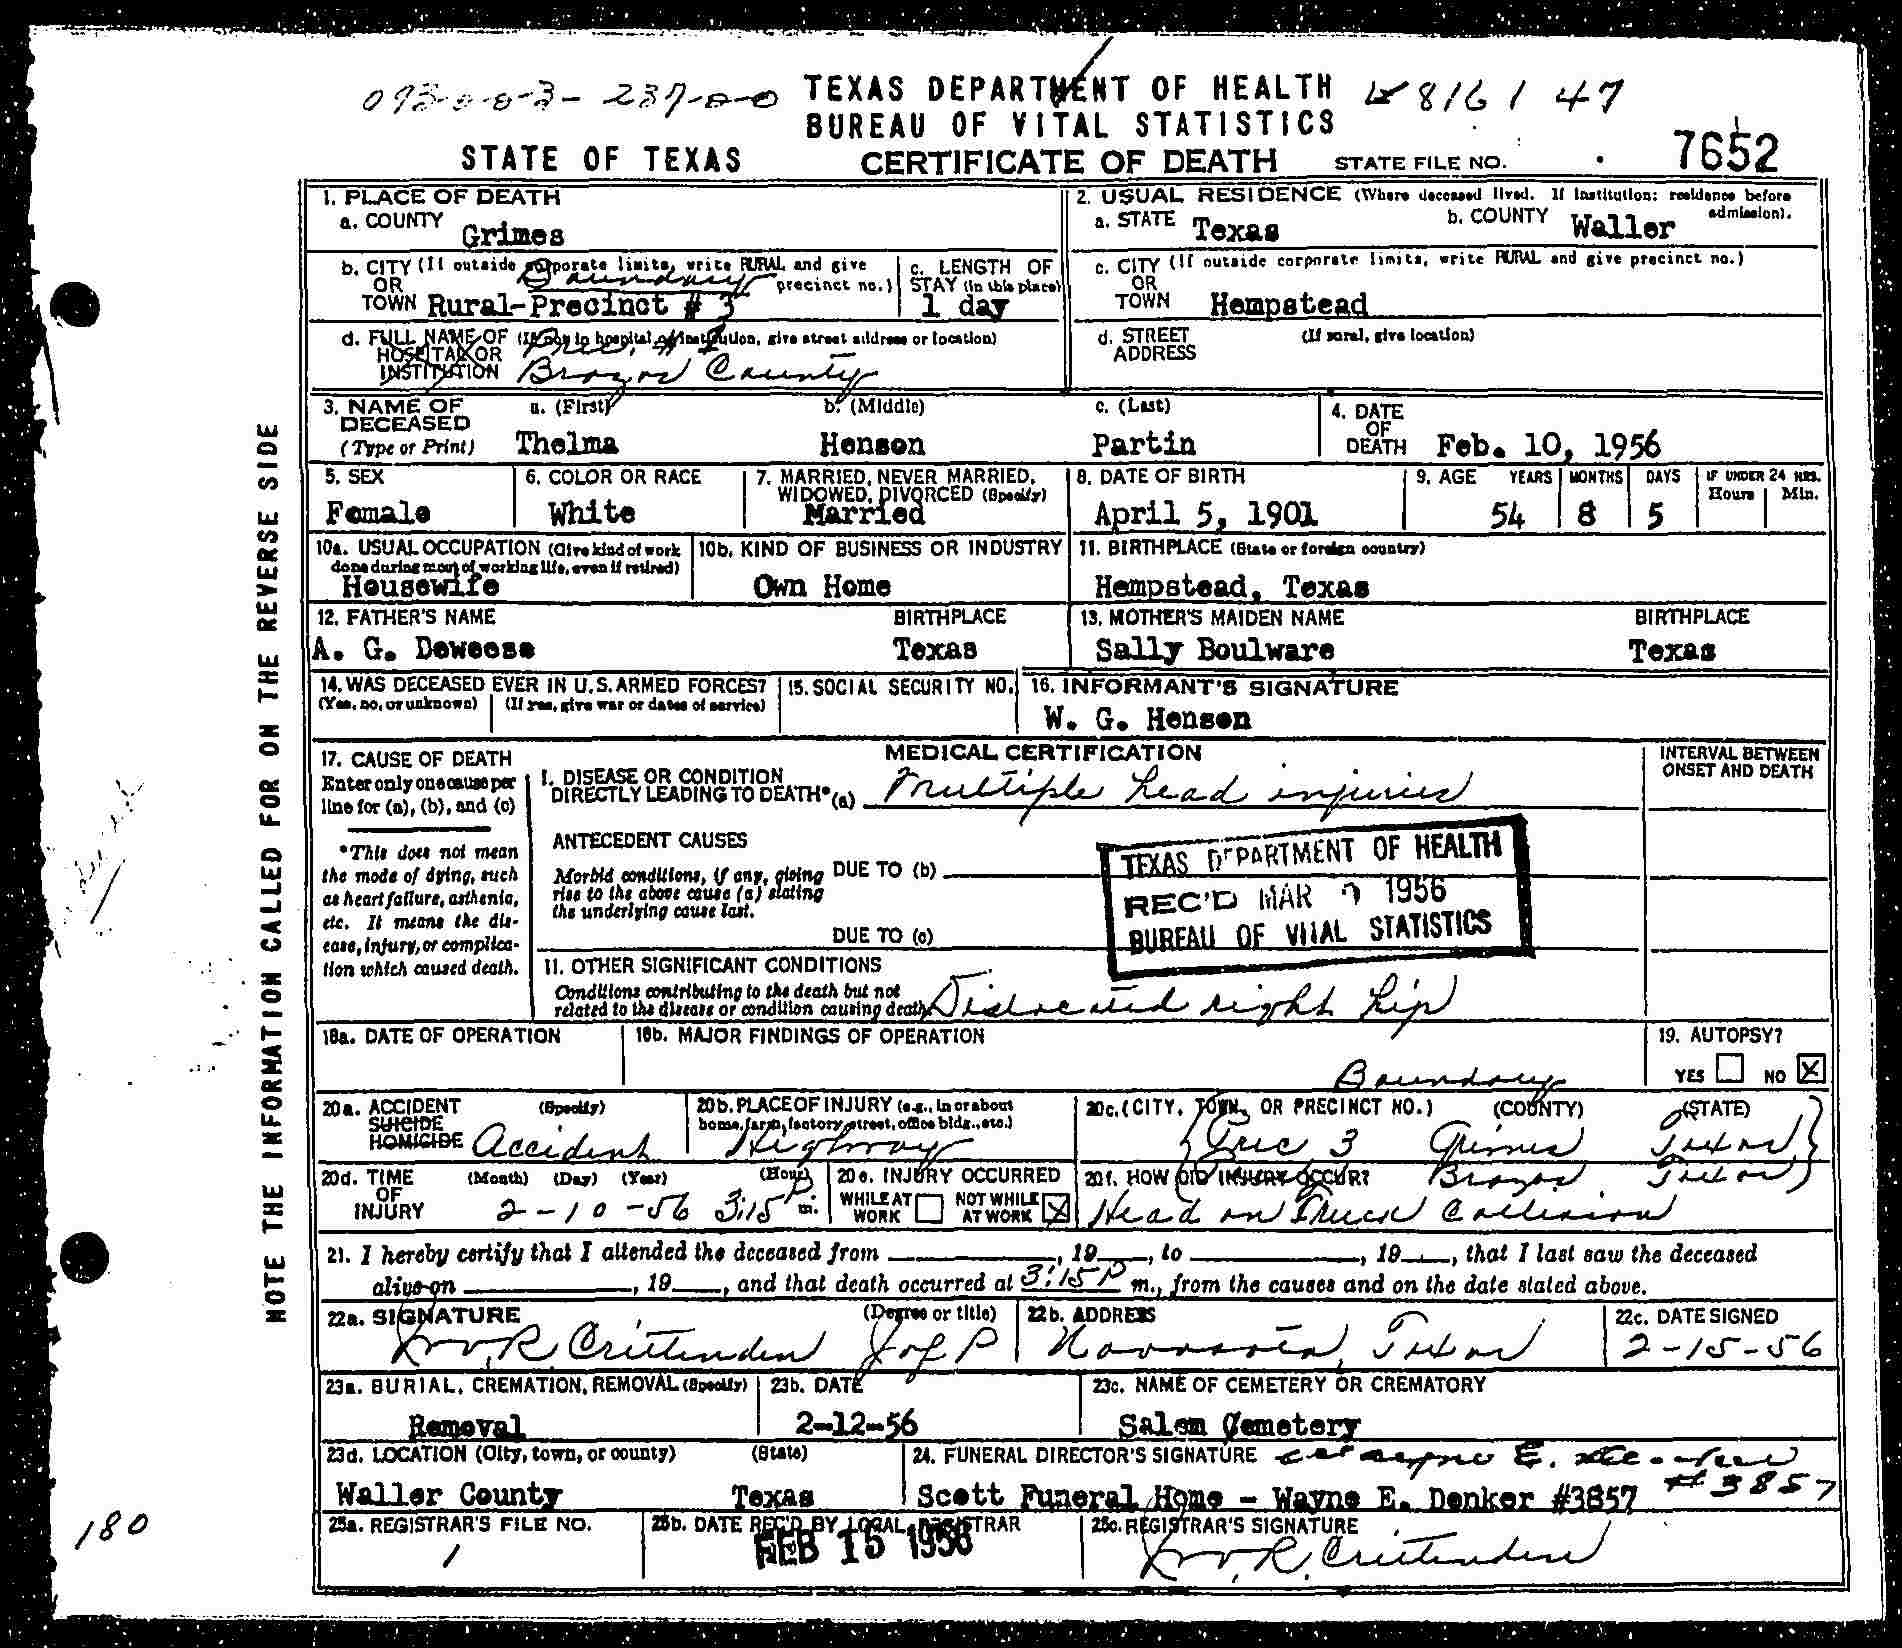 093-0-0-3- 237-0-0 TEXAS DEPARTMENT OF HEALTH 8161 47
BUREAU OF VITAL STATISTICS
STATE OF TEXAS CERTIFICATE OF DEATH STATE FILE NO. 7652
NOTE THE INFORMATION CALLED FOR ON THE REVERSE SIDE
1. PLACE OF DEATH
a. COUNTY Grimes
2. USUAL RESIDENCE (Where deceased lived. If institution: residence before admission).
a. STATE Texas b. COUNTY Waller
b. CITY (If outside corporate limits, write RURAL and give precinct no.)
OR
TOWN Rural-Precinct # 3 Boundary
c. LENGTH OF STAY (in this place) 1 day
c. CITY (If outside corporate limits, write RURAL and give precinct no.)
OR
TOWN Hempstead
d. FULL NAME OF (If not in hospital or institution, give street address or location)
HOSPITAL OR
INSTITUTION Prec. # Brazos County
d. STREET ADDRESS (If rural, give location)
3. NAME OF DECEASED (Type or Print)
a. (First) Thelma b. (Middle) Henson c. (Last) Partin
4. DATE OF DEATH Feb. 10, 1956
5. SEX Female
6. COLOR OR RACE White
7. MARRIED, NEVER MARRIED, WIDOWED, DIVORCED (Specify) Married
8. DATE OF BIRTH April 5, 1901
9. AGE YEARS 54 MONTHS 8 DAYS 5 IF UNDER 24 HRS. Hours Min.
10a. USUAL OCCUPATION (Give kind of work done during most of working life, even if retired) Housewife
10b. KIND OF BUSINESS OR INDUSTRY Own Home
11. BIRTHPLACE (State or foreign country) Hempstead, Texas
12. FATHER'S NAME A. G. Deweese BIRTHPLACE Texas
13. MOTHER'S MAIDEN NAME Sally Boulware BIRTHPLACE Texas
14. WAS DECEASED EVER IN U.S. ARMED FORCES?
(Yes, no, or unknown) (If yes, give war or dates of service)
15. SOCIAL SECURITY NO.
16. INFORMANT'S SIGNATURE W. G. Henson
17. CAUSE OF DEATH
Enter only one cause per line for (a), (b), and (c)
*This does not mean the mode of dying, such as heart failure, asthenia, etc. It means the disease, injury, or complication which caused death.
MEDICAL CERTIFICATION
INTERVAL BETWEEN ONSET AND DEATH
I. DISEASE OR CONDITION DIRECTLY LEADING TO DEATH* (a) Multiple head injuries
ANTECEDENT CAUSES
Morbid conditions, if any, giving rise to the above cause (a) stating the underlying cause last.
DUE TO (b)
DUE TO (c)
TEXAS DEPARTMENT OF HEALTH
REC'D MAR 1956
BUREAU OF VITAL STATISTICS
II. OTHER SIGNIFICANT CONDITIONS
Conditions contributing to the death but not related to the disease or condition causing death. Dislocated right hip
18a. DATE OF OPERATION
18b. MAJOR FINDINGS OF OPERATION
19. AUTOPSY? YES NO X
Boundary
20a. ACCIDENT SUICIDE HOMICIDE (Specify) Accident
20b. PLACE OF INJURY (e.g., in or about home, farm, factory, street, office bldg., etc.) Highway
20c. (CITY, TOWN, OR PRECINCT NO.) (COUNTY) (STATE)
Prec 3 Grimes Texas
Brazos Texas
20d. TIME OF INJURY (Month) (Day) (Year) (Hour) 2-10-56 3:15 P m.
20e. INJURY OCCURRED WHILE AT WORK NOT WHILE AT WORK X
20f. HOW DID INJURY OCCUR? Head on Truck Collision
21. I hereby certify that I attended the deceased from , 19 , to , 19 , that I last saw the deceased
alive on , 19 , and that death occurred at 3:15 P m., from the causes and on the date stated above.
22a. SIGNATURE (Degree or title) R. Crittenden J of P
22b. ADDRESS Navasota, Texas
22c. DATE SIGNED 2-15-56
23a. BURIAL, CREMATION, REMOVAL (Specify) Removal
23b. DATE 2-12-56
23c. NAME OF CEMETERY OR CREMATORY Salem Cemetery
23d. LOCATION (City, town, or county) (State) Waller County Texas
24. FUNERAL DIRECTOR'S SIGNATURE Wayne E. #3857
Scott Funeral Home - Wayne E. Denker #3857
25a. REGISTRAR'S FILE NO. 1
25b. DATE REC'D BY LOCAL REGISTRAR FEB 15 1956
25c. REGISTRAR'S SIGNATURE R. Crittenden
180